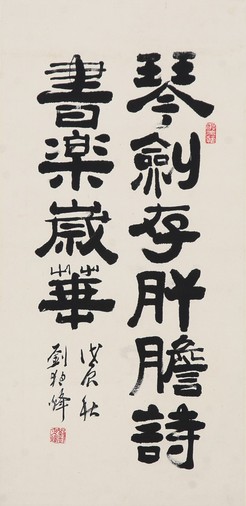 琴劍存肝膽詩
書樂歲華
戊寅秋
劉炳烽